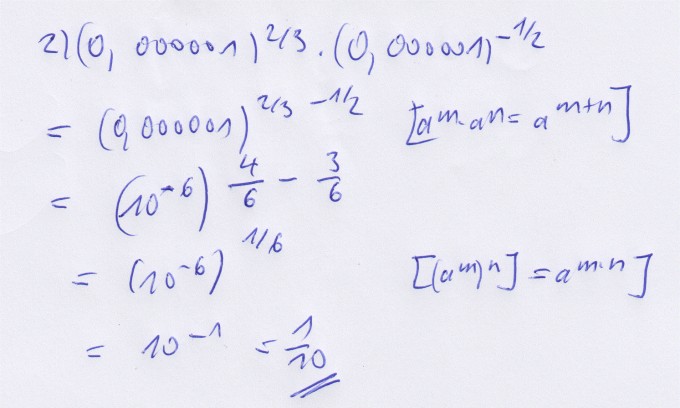 2) (0,000001)^2/3 · (0,000001)^-1/2
= (0,000001)^2/3 -1/2 [a^m · a^n = a^m+n]
= (10^-6)^4/6 - 3/6
= (10^-6)^1/6 [(a^m)^n] = a^m·n]
= 10^-1 = 1/10